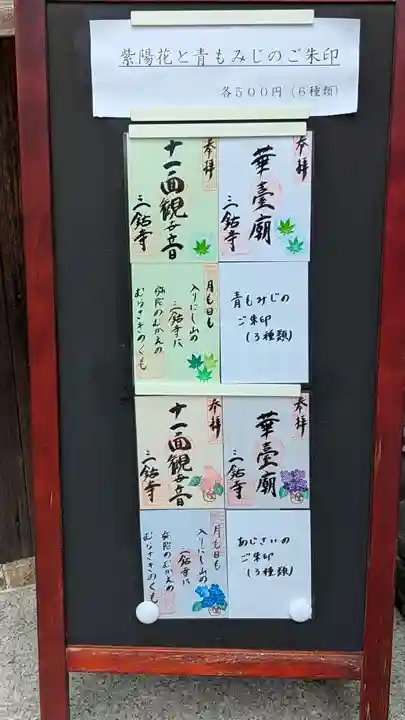 紫陽花と青もみじのご朱印
各500円（6種類）
奉拝
華臺廟
三鈷寺
奉拝
十一面観世音
三鈷寺
青もみじの
ご朱印
(3種類)
月も日も
入りにし山の
三鈷寺は
弥陀のむかえの
むらさきのくも
奉拝
華臺廟
三鈷寺
奉拝
十一面観世音
三鈷寺
あじさいの
ご朱印
(3種類)
月も日も
入りにし山の
三鈷寺は
弥陀のむかえの
むらさきのくも